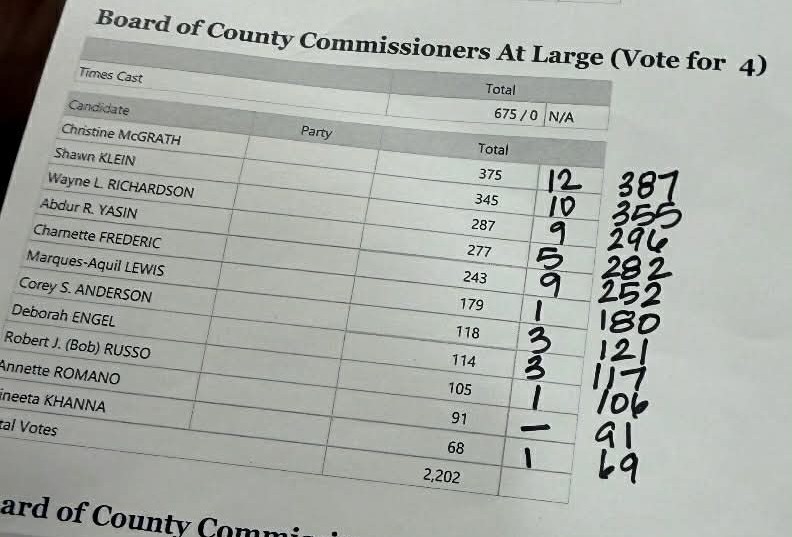 Board of County Commissioners At Large (Vote for 4)
Total
Times Cast 675 / 0 N/A
Candidate Party Total
Christine McGRATH 375 12 387
Shawn KLEIN 345 10 355
Wayne L. RICHARDSON 287 9 296
Abdur R. YASIN 277 5 282
Charnette FREDERIC 243 9 252
Marques-Aquil LEWIS 179 1 180
Corey S. ANDERSON 118 3 121
Deborah ENGEL 114 3 117
Robert J. (Bob) RUSSO 105 1 106
Annette ROMANO 91 — 91
ineeta KHANNA 68 1 69
tal Votes 2,202
ard of County Commis